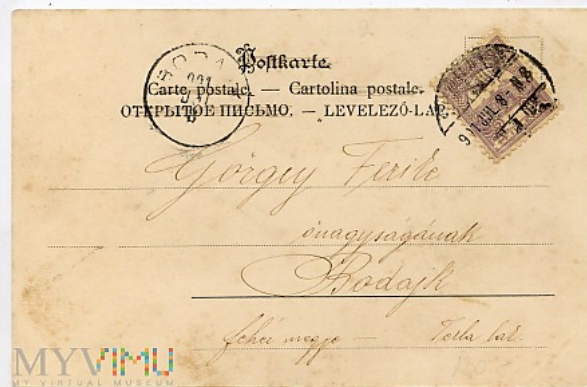 Postkarte.
Carte postale. — Cartolina postale.
ОТКРЫТОЕ ПИСЬМО. — LEVELEZŐ-LAP.
BODA
901
JUL
Görgey Ferike
őnagyságának
Bodajk
fehér megye —
JUL. 8
MYVIMU
MY VIRTUAL MUSEUM